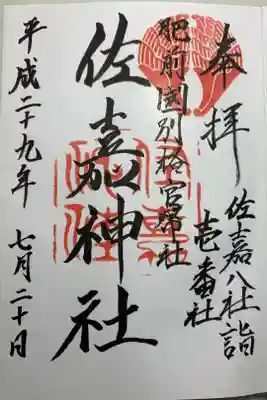 奉拝
佐嘉八社詣
壱番社
肥前國別格官幣社
佐嘉神社
平成二十九年 七月二十日